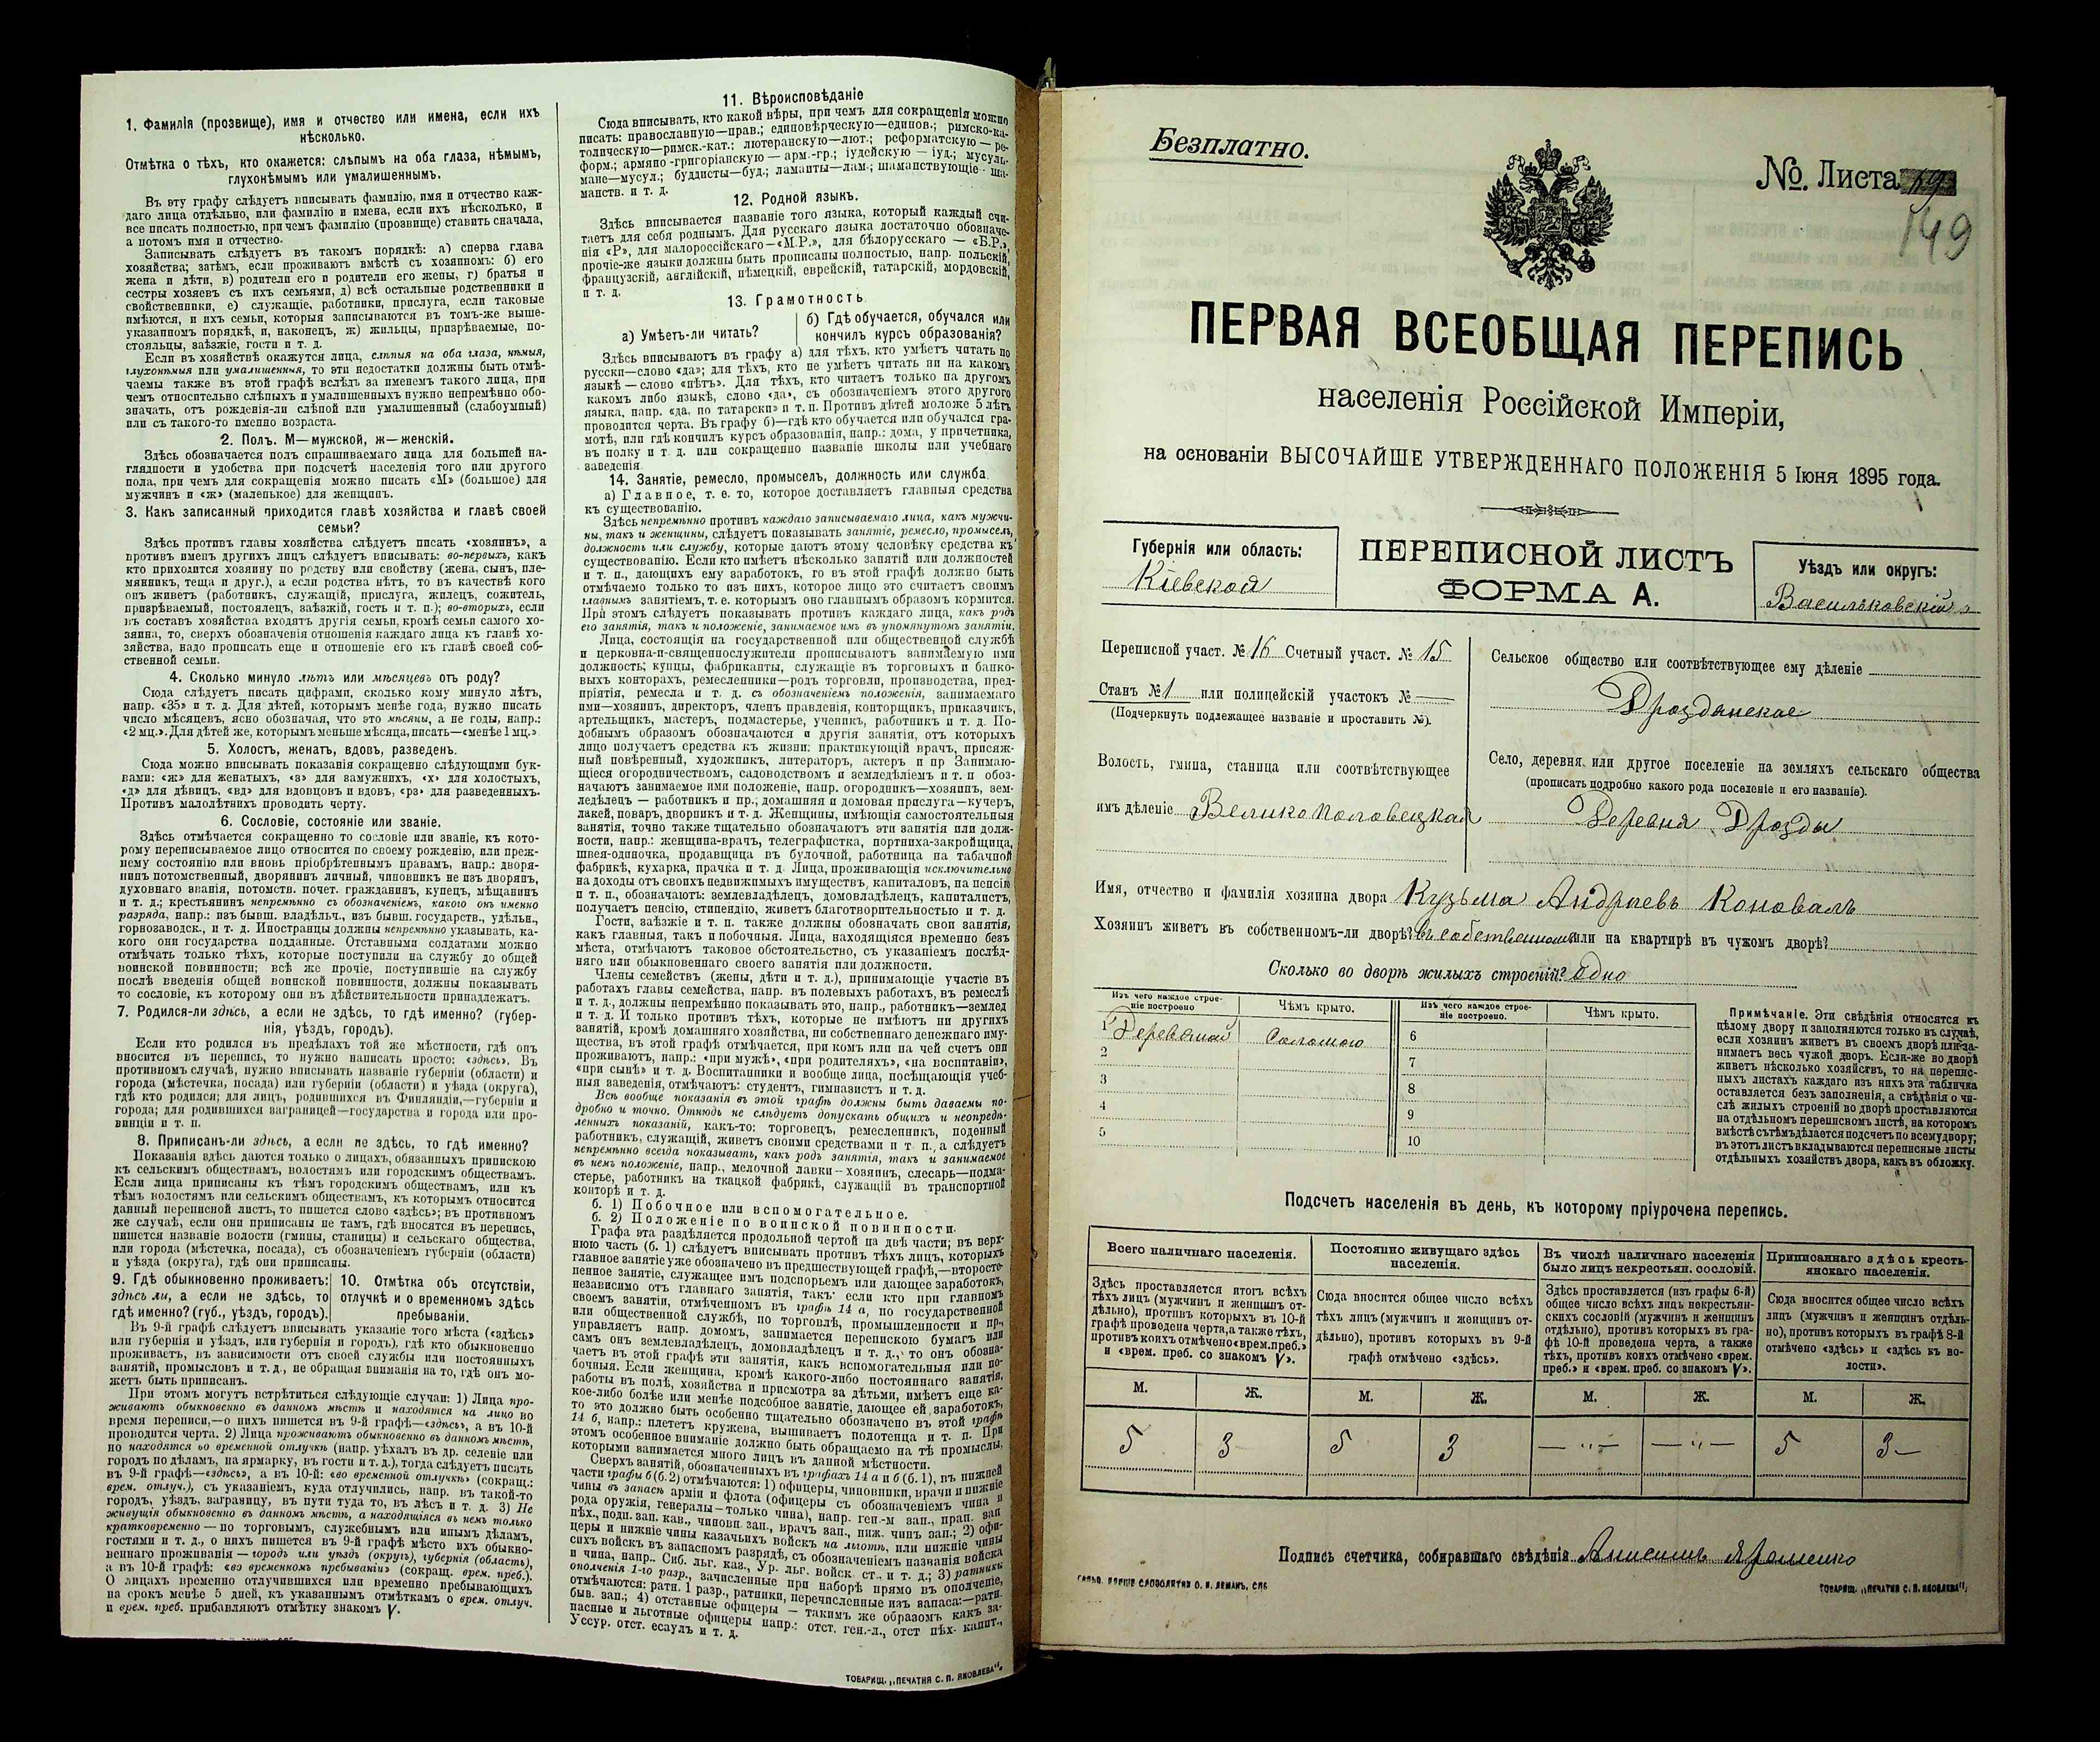 1. Фамилія (прозвище), имя и отчество или имена, если ихъ
нѣсколько.
Отмѣтка о тѣхъ, кто окажется: слѣпымъ на оба глаза, нѣмымъ,
глухонѣмымъ или умалишеннымъ.
Въ эту графу слѣдуетъ вписывать фамилію, имя и отчество каж-
даго лица отдѣльно, или фамилію и имена, если ихъ нѣсколько, и
все писать полностью, при чемъ фамилію (прозвище) ставить сначала,
а потомъ имя и отчество.
Записывать слѣдуетъ въ такомъ порядкѣ: а) сперва глава
хозяйства; затѣмъ, если проживаютъ вмѣстѣ съ хозяиномъ: б) его
жена и дѣти, в) родители его и родители его жены, г) братья и
сестры хозяевъ съ ихъ семьями, д) всѣ остальные родственники и
свойственники, е) служащіе, работники, прислуга, если таковые
имѣются, и ихъ семьи, которыя записываются въ томъ-же выше-
указанномъ порядкѣ, и, наконецъ, ж) жильцы, призрѣваемые, по-
стояльцы, заѣзжіе, гости и т. д.
Если въ хозяйствѣ окажутся лица, слѣпыя на оба глаза, нѣмыя,
глухонѣмыя или умалишенныя, то эти недостатки должны быть отмѣ-
чаемы также въ этой графѣ вслѣдъ за именемъ такого лица, при
чемъ относительно слѣпыхъ и умалишенныхъ нужно непремѣнно обо-
значать, отъ рожденія-ли слѣпой или умалишенный (слабоумный)
или съ такого-то именно возраста.
2. Полъ. М—мужской, ж—женскій.
Здѣсь обозначается полъ спрашиваемаго лица для большей на-
глядности и удобства при подсчетѣ населенія того или другого
пола, при чемъ для сокращенія можно писать «М» (большое) для
мужчинъ и «ж» (маленькое) для женщинъ.
3. Какъ записанный приходится главѣ хозяйства и главѣ своей
семьи?
Здѣсь противъ главы хозяйства слѣдуетъ писать «хозяинъ», а
противъ именъ другихъ лицъ слѣдуетъ вписывать: во-первыхъ, какъ
кто приходится хозяину по родству или свойству (жена, сынъ, пле-
мянникъ, теща и друг.), а если родства нѣтъ, то въ качествѣ кого
онъ живетъ (работникъ, служащій, прислуга, жилецъ, сожитель,
призрѣваемый, постоялецъ, заѣзжій, гость и т. п.); во-вторыхъ, если
въ составъ хозяйства входятъ другія семьи, кромѣ семьи самого хо-
зяина, то, сверхъ обозначенія отношенія каждаго лица къ главѣ хо-
зяйства, надо прописать еще и отношеніе его къ главѣ своей соб-
ственной семьи.
4. Сколько минуло лѣтъ или мѣсяцевъ отъ роду?
Сюда слѣдуетъ писать цифрами, сколько кому минуло лѣтъ,
напр. «35» и т. д. Для дѣтей, которымъ менѣе года, нужно писать
число мѣсяцевъ, ясно обозначая, что это мѣсяцы, а не годы, напр.:
«2 мц.». Для дѣтей же, которымъ меньше мѣсяца, писать—«менѣе 1 мц.»
5. Холостъ, женатъ, вдовъ, разведенъ.
Сюда можно вписывать показанія сокращенно слѣдующими бук-
вами: «ж» для женатыхъ, «з» для замужнихъ, «х» для холостыхъ,
«д» для дѣвицъ, «вд» для вдовцовъ и вдовъ, «рз» для разведенныхъ.
Противъ малолѣтнихъ проводить черту.
6. Сословіе, состояніе или званіе.
Здѣсь отмѣчается сокращенно то сословіе или званіе, къ кото-
рому переписываемое лицо относится по своему рожденію, или преж-
нему состоянію или вновь пріобрѣтеннымъ правамъ, напр.: дворя-
нинъ потомственный, дворянинъ личный, чиновникъ не изъ дворянъ,
духовнаго званія, потомств. почет. гражданинъ, купецъ, мѣщанинъ
и т. д.; крестьянинъ непремѣнно съ обозначеніемъ, какого онъ именно
разряда, напр.: изъ бывш. владѣльч., изъ бывш. государств., удѣльн.,
горнозаводск., и т. д. Иностранцы должны непремѣнно указывать, ка-
кого они государства подданные. Отставными солдатами можно
отмѣчать только тѣхъ, которые поступили на службу до общей
воинской повинности; всѣ же прочіе, поступившіе на службу
послѣ введенія общей воинской повинности, должны показывать
то сословіе, къ которому они въ дѣйствительности принадлежатъ.
7. Родился-ли здѣсь, а если не здѣсь, то гдѣ именно? (губер-
нія, уѣздъ, городъ).
Если кто родился въ предѣлахъ той же мѣстности, гдѣ онъ
вносится въ перепись, то нужно написать просто: «здѣсь». Въ
противномъ случаѣ, нужно вписывать названіе губерніи (области) и
города (мѣстечка, посада) или губерніи (области) и уѣзда (округа),
гдѣ кто родился; для лицъ, родившихся въ Финляндіи,—губерніи и
города; для родившихся заграницей—государства и города или про-
винціи и т. п.
8. Приписанъ-ли здѣсь, а если не здѣсь, то гдѣ именно?
Показанія здѣсь даются только о лицахъ, обязанныхъ припискою
къ сельскимъ обществамъ, волостямъ или городскимъ обществамъ.
Если лица приписаны къ тѣмъ городскимъ обществамъ, или къ
тѣмъ волостямъ или сельскимъ обществамъ, къ которымъ относится
данный переписной листъ, то пишется слово «здѣсь»; въ противномъ
же случаѣ, если они приписаны не тамъ, гдѣ вносятся въ перепись,
пишется названіе волости (гмины, станицы) и сельскаго общества,
или города (мѣстечка, посада), съ обозначеніемъ губерніи (области)
и уѣзда (округа), гдѣ они приписаны.
9. Гдѣ обыкновенно проживаетъ:
здѣсь ли, а если не здѣсь, то
гдѣ именно? (губ., уѣздъ, городъ).
10. Отмѣтка объ отсутствіи,
отлучкѣ и о временномъ здѣсь
пребываніи.
Въ 9-й графѣ слѣдуетъ вписывать указаніе того мѣста («здѣсь»
или губернія и уѣздъ, или губернія и городъ), гдѣ кто обыкновенно
проживаетъ, въ зависимости отъ своей службы или постоянныхъ
занятій, промысловъ и т. д., не обращая вниманія на то, гдѣ онъ мо-
жетъ быть приписанъ.
При этомъ могутъ встрѣтиться слѣдующіе случаи: 1) Лица про-
живаютъ обыкновенно въ данномъ мѣстѣ и находятся на лицо во
время переписи,—о нихъ пишется въ 9-й графѣ—«здѣсь», а въ 10-й
проводится черта. 2) Лица проживаютъ обыкновенно въ данномъ мѣстѣ,
но находятся во временной отлучкѣ (напр. уѣхалъ въ др. селеніе или
городъ по дѣламъ, на ярмарку, въ гости и т. д.), тогда слѣдуетъ писать
въ 9-й графѣ—«здѣсь», а въ 10-й: «во временной отлучкѣ» (сокращ.:
врем. отлуч.), съ указаніемъ, куда отлучились, напр. въ такой-то
городъ, уѣздъ, заграницу, въ пути туда то, въ лѣсъ и т. д. 3) Не
живущія обыкновенно въ данномъ мѣстѣ, а находящіяся въ немъ только
кратковременно — по торговымъ, служебнымъ или инымъ дѣламъ,
гостями и т. д., о нихъ пишется въ 9-й графѣ мѣсто ихъ обыкно-
веннаго проживанія — городъ или уѣздъ (округъ), губернія (область),
а въ 10-й графѣ: «во временномъ пребываніи» (сокращ. врем. преб.).
О лицахъ временно отлучившихся или временно пребывающихъ
на срокъ менѣе 5 дней, къ указаннымъ отмѣткамъ о врем. отлуч.
и врем. преб. прибавляютъ отмѣтку знакомъ V.
11. Вѣроисповѣданіе
Сюда вписывать, кто какой вѣры, при чемъ для сокращенія можно
писать: православную—прав.; единовѣрческую—единов.; римско-ка-
толическую—римск.-кат.; лютеранскую—лют.; реформатскую — ре-
форм.; армяно-григоріанскую — арм.-гр.; іудейскую — іуд.; мусуль-
мане—мусул.; буддисты—буд.; ламаиты—лам.; шаманствующіе - ша-
манств. и т. д.
12. Родной языкъ.
Здѣсь вписывается названіе того языка, который каждый счи-
таетъ для себя роднымъ. Для русскаго языка достаточно обозначе-
нія «Р», для малороссійскаго—«М.Р.», для бѣлорусскаго — «Б.Р.»,
прочіе-же языки должны быть прописаны полностью, напр. польскій,
французскій, англійскій, нѣмецкій, еврейскій, татарскій, мордовскій,
и т. д.
13. Грамотность
а) Умѣетъ-ли читать?
б) Гдѣ обучается, обучался или
кончилъ курсъ образованія?
Здѣсь вписываютъ въ графу а) для тѣхъ, кто умѣетъ читать по
русски—слово «да»; для тѣхъ, кто не умѣетъ читать ни на какомъ
языкѣ — слово «нѣтъ». Для тѣхъ, кто читаетъ только на другомъ
какомъ либо языкѣ, слово «да», съ обозначеніемъ этого другого
языка, напр. «да, по татарски» и т. п. Противъ дѣтей моложе 5 лѣтъ
проводится черта. Въ графу б)—гдѣ кто обучается или обучался гра-
мотѣ, или гдѣ кончилъ курсъ образованія, напр.: дома, у причетника,
въ полку и т. д. или сокращенно названіе школы или учебнаго
заведенія.
14. Занятіе, ремесло, промыселъ, должность или служба.
а) Главное, т. е. то, которое доставляетъ главныя средства
къ существованію.
Здѣсь непремѣнно противъ каждаго записываемаго лица, какъ мужчи-
ны, такъ и женщины, слѣдуетъ показывать занятіе, ремесло, промыселъ,
должность или службу, которые даютъ этому человѣку средства къ
существованію. Если кто имѣетъ нѣсколько занятій или должностей
и т. п., дающихъ ему заработокъ, то въ этой графѣ должно быть
отмѣчаемо только то изъ нихъ, которое лицо это считаетъ своимъ
главнымъ занятіемъ, т. е. которымъ оно главнымъ образомъ кормится.
При этомъ слѣдуетъ показывать противъ каждаго лица, какъ родъ
его занятія, такъ и положеніе, занимаемое имъ въ упомянутомъ занятіи.
Лица, состоящія на государственной или общественной службѣ
и церковно-и-священнослужители прописываютъ занимаемую ими
должность; купцы, фабриканты, служащіе въ торговыхъ и банко-
выхъ конторахъ, ремесленники—родъ торговли, производства, пред-
пріятія, ремесла и т. д. съ обозначеніемъ положенія, занимаемаго
ими—хозяинъ, директоръ, членъ правленія, конторщикъ, приказчикъ,
артельщикъ, мастеръ, подмастерье, ученикъ, работникъ и т. д. По-
добнымъ образомъ обозначаются и другія занятія, отъ которыхъ
лицо получаетъ средства къ жизни: практикующій врачъ, присяж-
ный повѣренный, художникъ, литераторъ, актеръ и пр Занимаю-
щіеся огородничествомъ, садоводствомъ и земледѣліемъ и т. п обоз-
начаютъ занимаемое ими положеніе, напр. огородникъ—хозяинъ, зем-
ледѣлецъ — работникъ и пр.; домашняя и домовая прислуга—кучеръ,
лакей, поваръ, дворникъ и т. д. Женщины, имѣющія самостоятельныя
занятія, точно также тщательно обозначаютъ эти занятія или долж-
ности, напр.: женщина-врачъ, телеграфистка, портниха-закройщица,
швея-одиночка, продавщица въ булочной, работница на табачной
фабрикѣ, кухарка, прачка и т. д. Лица, проживающія исключительно
на доходы отъ своихъ недвижимыхъ имуществъ, капиталовъ, на пенсію
и т. п., обозначаютъ: землевладѣлецъ, домовладѣлецъ, капиталистъ,
получаетъ пенсію, стипендію, живетъ благотворительностью и т. д.
Гости, заѣзжіе и т. п. также должны обозначать свои занятія,
какъ главныя, такъ и побочныя. Лица, находящіяся временно безъ
мѣста, отмѣчаютъ таковое обстоятельство, съ указаніемъ послѣд-
няго или обыкновеннаго своего занятія или должности.
Члены семействъ (жены, дѣти и т. д.), принимающіе участіе въ
работахъ главы семейства, напр. въ полевыхъ работахъ, въ ремеслѣ
и т. д., должны непремѣнно показывать это, напр., работникъ—землед
и т. д. И только противъ тѣхъ, которые не имѣютъ ни другихъ
занятій, кромѣ домашняго хозяйства, ни собственнаго денежнаго иму-
щества, въ этой графѣ отмѣчается, при комъ или на чей счетъ они
проживаютъ, напр.: «при мужѣ», «при родителяхъ», «на воспитаніи»,
«при сынѣ» и т. д. Воспитанники и вообще лица, посѣщающія учеб-
ныя заведенія, отмѣчаютъ: студентъ, гимназистъ и т. д.
Всѣ вообще показанія въ этой графѣ должны быть даваемы по-
дробно и точно. Отнюдь не слѣдуетъ допускать общихъ и неопредѣ-
ленныхъ показаній, какъ-то: торговецъ, ремесленникъ, поденный
работникъ, служащій, живетъ своими средствами и т. п., а слѣдуетъ
непремѣнно всегда показывать, какъ родъ занятія, такъ и занимаемое
въ немъ положеніе, напр., мелочной лавки - хозяинъ, слесарь—подма-
стерье, работникъ на ткацкой фабрикѣ, служащій въ транспортной
конторѣ и т. д.
б. 1) Побочное или вспомогательное.
б. 2) Положеніе по воинской повинности.
Графа эта раздѣляется продольной чертой на двѣ части; въ верх-
нюю часть (б. 1) слѣдуетъ вписывать противъ тѣхъ лицъ, которыхъ
главное занятіе уже обозначено въ предшествующей графѣ,—второсте-
пенное занятіе, служащее имъ подспорьемъ или дающее заработокъ,
независимо отъ главнаго занятія, такъ: если кто при главномъ
своемъ занятіи, отмѣченномъ въ графѣ 14 а, по государственной
или общественной службѣ, по торговлѣ, промышленности и пр.,
управляетъ напр. домомъ, занимается перепискою бумагъ или
самъ онъ землевладѣлецъ, домовладѣлецъ и т. д., то онъ обозна-
чаетъ въ этой графѣ эти занятія, какъ вспомогательныя или по-
бочныя. Если женщина, кромѣ какого-либо постояннаго занятія,
работы въ полѣ, хозяйства и присмотра за дѣтьми, имѣетъ еще ка-
кое-либо болѣе или менѣе подсобное занятіе, дающее ей заработокъ,
то это должно быть особенно тщательно обозначено въ этой графѣ
14 б, напр.: плететъ кружева, вышиваетъ полотенца и т. п. При
этомъ особенное вниманіе должно быть обращаемо на тѣ промыслы,
которыми занимается много лицъ въ данной мѣстности.
Сверхъ занятій, обозначенныхъ въ графахъ 14 а и б (б. 1), въ нижней
части графы б (б. 2) отмѣчаются: 1) офицеры, чиновники, врачи и нижніе
чины въ запасѣ арміи и флота (офицеры съ обозначеніемъ чина и
рода оружія, генералы—только чина), напр. ген.-м зап., прап. зап
пѣх., подп. зап. кав., чиновн. зап., врачъ зап., ниж. чинъ зап.; 2) офи-
церы и нижніе чины казачьихъ войскъ на льготѣ, или нижніе чины
сихъ войскъ въ запасномъ разрядѣ, съ обозначеніемъ названія войска
и чина, напр.. Сиб. льг. каз., Ур. льг. войск. ст., и т. д.; 3) ратники
ополченія 1-го разр., зачисленные при наборѣ прямо въ ополченіе,
отмѣчаются: ратн. 1 разр., ратники, перечисленные изъ запаса:—ратн.
быв. зап.; 4) отставные офицеры — такимъ же образомъ какъ за-
пасные и льготные офицеры напр.: отст. ген.-л., отст пѣх. капит.,
Уссур. отст. есаулъ и т. д.
ТОВАРИЩ. „ПЕЧАТНЯ С. П. ЯКОВЛЕВА“.
Безплатно.
№. Листа
149
ПЕРВАЯ ВСЕОБЩАЯ ПЕРЕПИСЬ
населенія Россійской Имперіи,
на основаніи ВЫСОЧАЙШЕ УТВЕРЖДЕННАГО ПОЛОЖЕНІЯ 5 Іюня 1895 года.
Губернія или область:
Кіевская
ПЕРЕПИСНОЙ ЛИСТЪ
ФОРМА А.
Уѣздъ или округъ:
Васильковскій
Переписной участ. № 16 Счетный участ. № 15
Станъ № 1 или полицейскій участокъ № —
(Подчеркнуть подлежащее названіе и проставить №).
Волость, гмина, станица или соотвѣтствующее
имъ дѣленіе Великополовецкая
Сельское общество или соотвѣтствующее ему дѣленіе
Дроздянское
Село, деревня или другое поселеніе на земляхъ сельскаго общества
(прописать подробно какого рода поселеніе и его названіе).
Деревня Дрозды
Имя, отчество и фамилія хозяина двора Кузьма Андріевъ Коновалъ
Хозяинъ живетъ въ собственномъ-ли дворѣ? въ собственномъ или на квартирѣ въ чужомъ дворѣ?
Сколько во дворѣ жилыхъ строеній? одно
Изъ чего каждое строе-
ніе построено
Чѣмъ крыто.
Изъ чего каждое строе-
ніе построено.
Чѣмъ крыто.
1 Деревяный Соломою 6
2 7
3 8
4 9
5 10
Примѣчаніе. Эти свѣдѣнія относятся къ
цѣлому двору и заполняются только въ случаѣ,
если хозяинъ живетъ въ своемъ дворѣ или за-
нимаетъ весь чужой дворъ. Если-же во дворѣ
живетъ нѣсколько хозяйствъ, то на перепис-
ныхъ листахъ каждаго изъ нихъ эта табличка
оставляется безъ заполненія, а свѣдѣнія о чи-
слѣ жилыхъ строеній во дворѣ проставляются
на отдѣльномъ переписномъ листѣ, на которомъ
вмѣстѣ съ тѣмъ дѣлается подсчетъ по всему двору;
въ этотъ листъ вкладываются переписные листы
отдѣльныхъ хозяйствъ двора, какъ въ обложку.
Подсчетъ населенія въ день, къ которому пріурочена перепись.
Всего наличнаго населенія.
Здѣсь проставляется итогъ всѣхъ
тѣхъ лицъ (мужчинъ и женщинъ от-
дѣльно), противъ которыхъ въ 10-й
графѣ проведена черта, а также тѣхъ,
противъ коихъ отмѣчено «врем. преб.»
и «врем. преб. со знакомъ V».
Постоянно живущаго здѣсь
населенія.
Сюда вносится общее число всѣхъ
тѣхъ лицъ (мужчинъ и женщинъ от-
дѣльно), противъ которыхъ въ 9-й
графѣ отмѣчено «здѣсь».
Въ числѣ наличнаго населенія
было лицъ некрестьян. сословій.
Здѣсь проставляется (изъ графы 6-й)
общее число всѣхъ лицъ некрестьян-
скихъ сословій (мужчинъ и женщинъ
отдѣльно), противъ которыхъ въ гра-
фѣ 10-й проведена черта, а также
тѣхъ, противъ коихъ отмѣчено «врем.
преб.» и «врем. преб. со знакомъ V».
Приписаннаго здѣсь кресть-
янскаго населенія.
Сюда вносится общее число всѣхъ
лицъ (мужчинъ и женщинъ отдѣль-
но), противъ которыхъ въ графѣ 8-й
отмѣчено «здѣсь» и «здѣсь къ во-
лости».
М. Ж. М. Ж. М. Ж. М. Ж.
5 3 5 3 — „ — — „ — 5 3—
Подпись счетчика, собиравшаго свѣдѣнія Анисимъ Ярошенко
ТОВАРИЩ. „ПЕЧАТНЯ С. П. ЯКОВЛЕВА“.